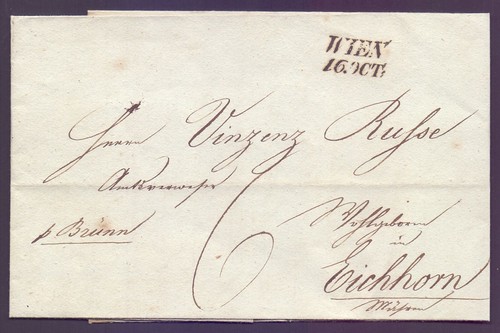 WIEN
16.OCT.
Herrn Vinzenz Russe
Amtsverweser
6
Wohlgeborn
p Brünn
in
Eichhorn
Mähren